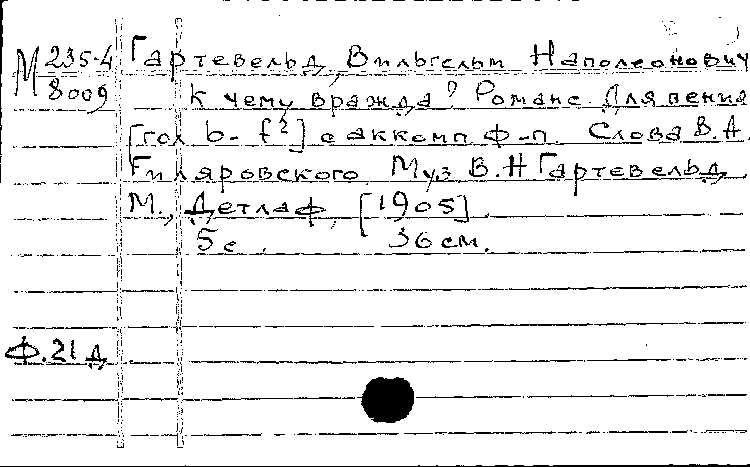 М 235-4
8009
Гартевельд, Вильгельм Наполеонович
К чему вражда? Романс. Для пения
[гол b-f²] с аккомп. ф-п. Слова В. А.
Гиляровского. Муз В. Н Гартевельд.
М., Детлаф, [1905].
5 с. 36 см.
Ф. 21 д